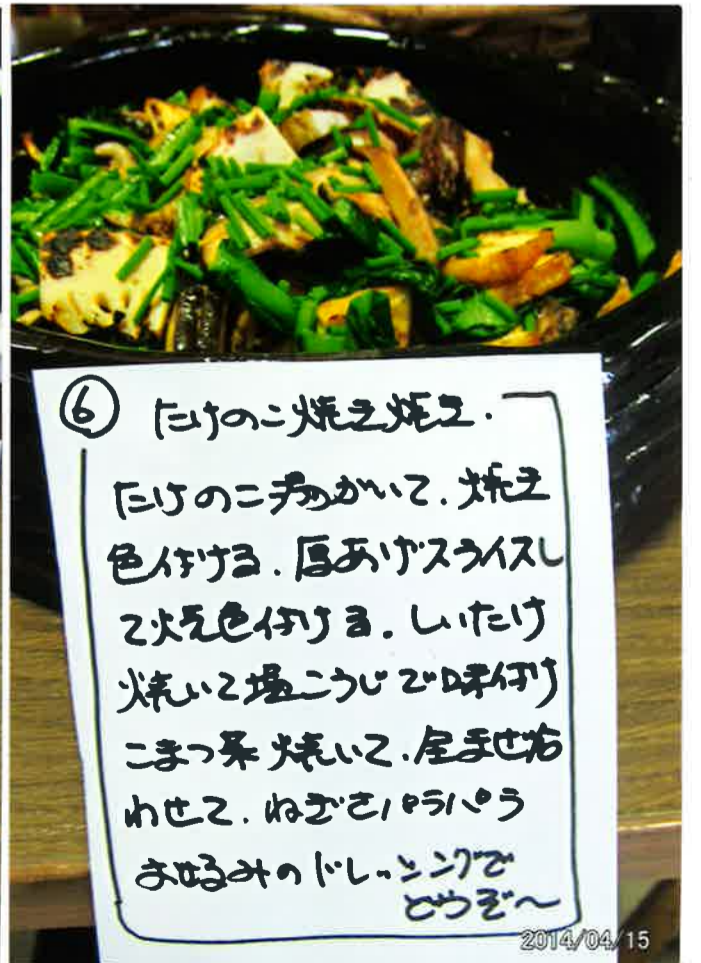 ⑥ たけのこ焼き焼き.
たけのこ湯がいて、焼き
色付ける. 厚あげスライスし
て焼色付ける. しいたけ
焼いて塩こうじで味付け
こまつ菜 焼いて、全ませ合
わせて、ねぎをパラパラ
お好みのドレッシングで
どうぞ〜
2014/04/15